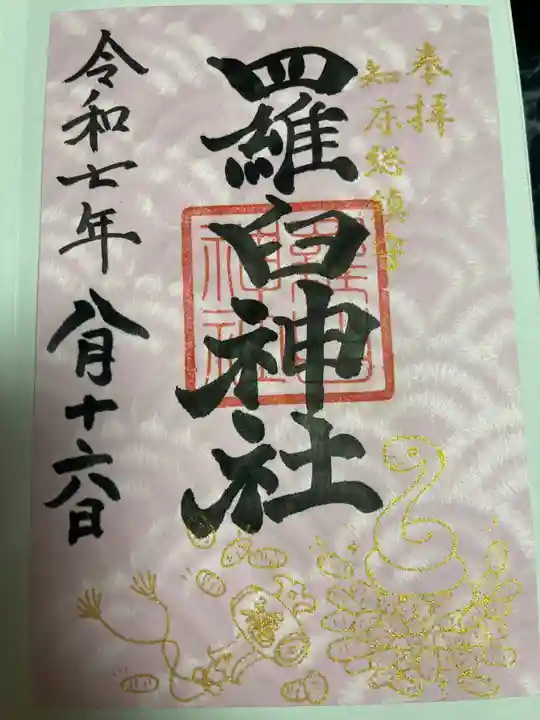 奉拝
知床総鎮守
羅臼神社
羅臼神社
令和七年 八月十六日